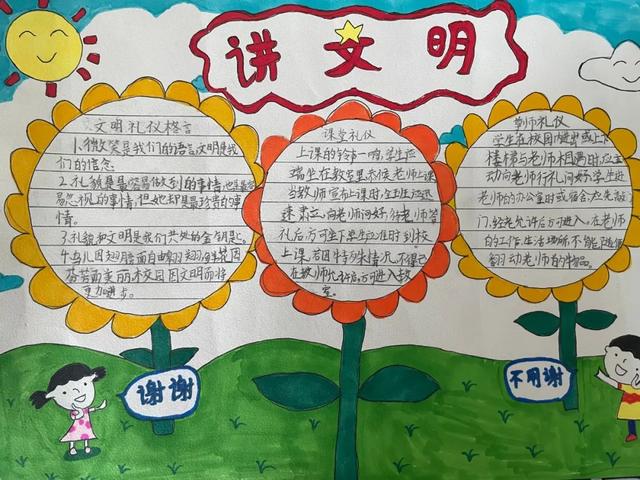 讲文明
文明礼仪格言
1.微笑是我们的语言,文明是我
们的信念.
2.礼貌是最容易做到的事情,也是最容
易忽视的事情,但她却是最珍贵的事
情。
3.礼貌和文明是我们共处的金钥匙.
4.鸟儿因翅膀而自由翱翔,鲜花因
芬芳而美丽,校园因文明而将
更加进步。
课堂礼仪
上课的铃声一响,学生应
端坐在教室里,恭候老师上课
当教师宣布上课时,全班应迅
速肃立,向老师问好,待老师答
礼后,方可坐下学生应准时到校
上课,若因特殊情况,不得已
在教师允许后,方可进入教
室。
尊师礼仪
学生在校园内进出或上下
楼梯与老师相遇时,应主
动向老师行礼问好,学生进
老师的办公室时或宿舍,应先敲
门,经老允许后方可进入,在老师
的工作、生活场所,不能随便
翻动老师的物品。
谢谢
不用谢